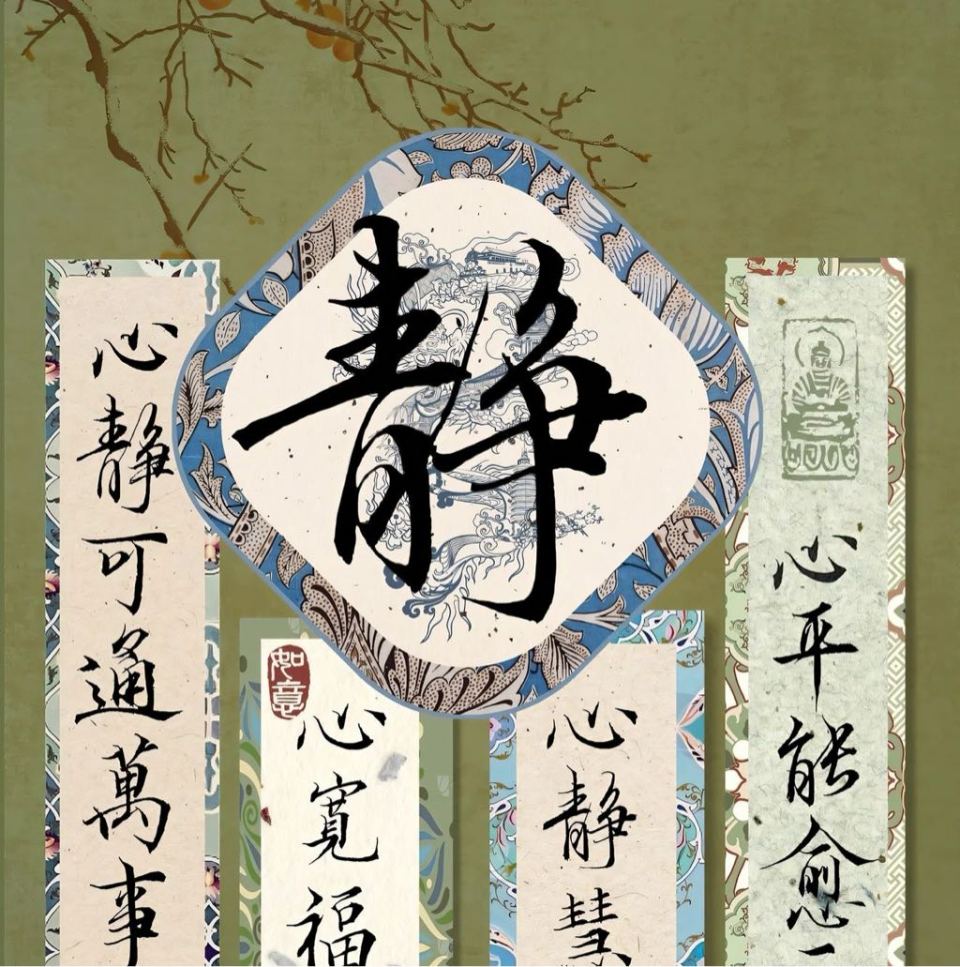 静
心平能愈
心静慧
如意
心寬福
心静可通萬事